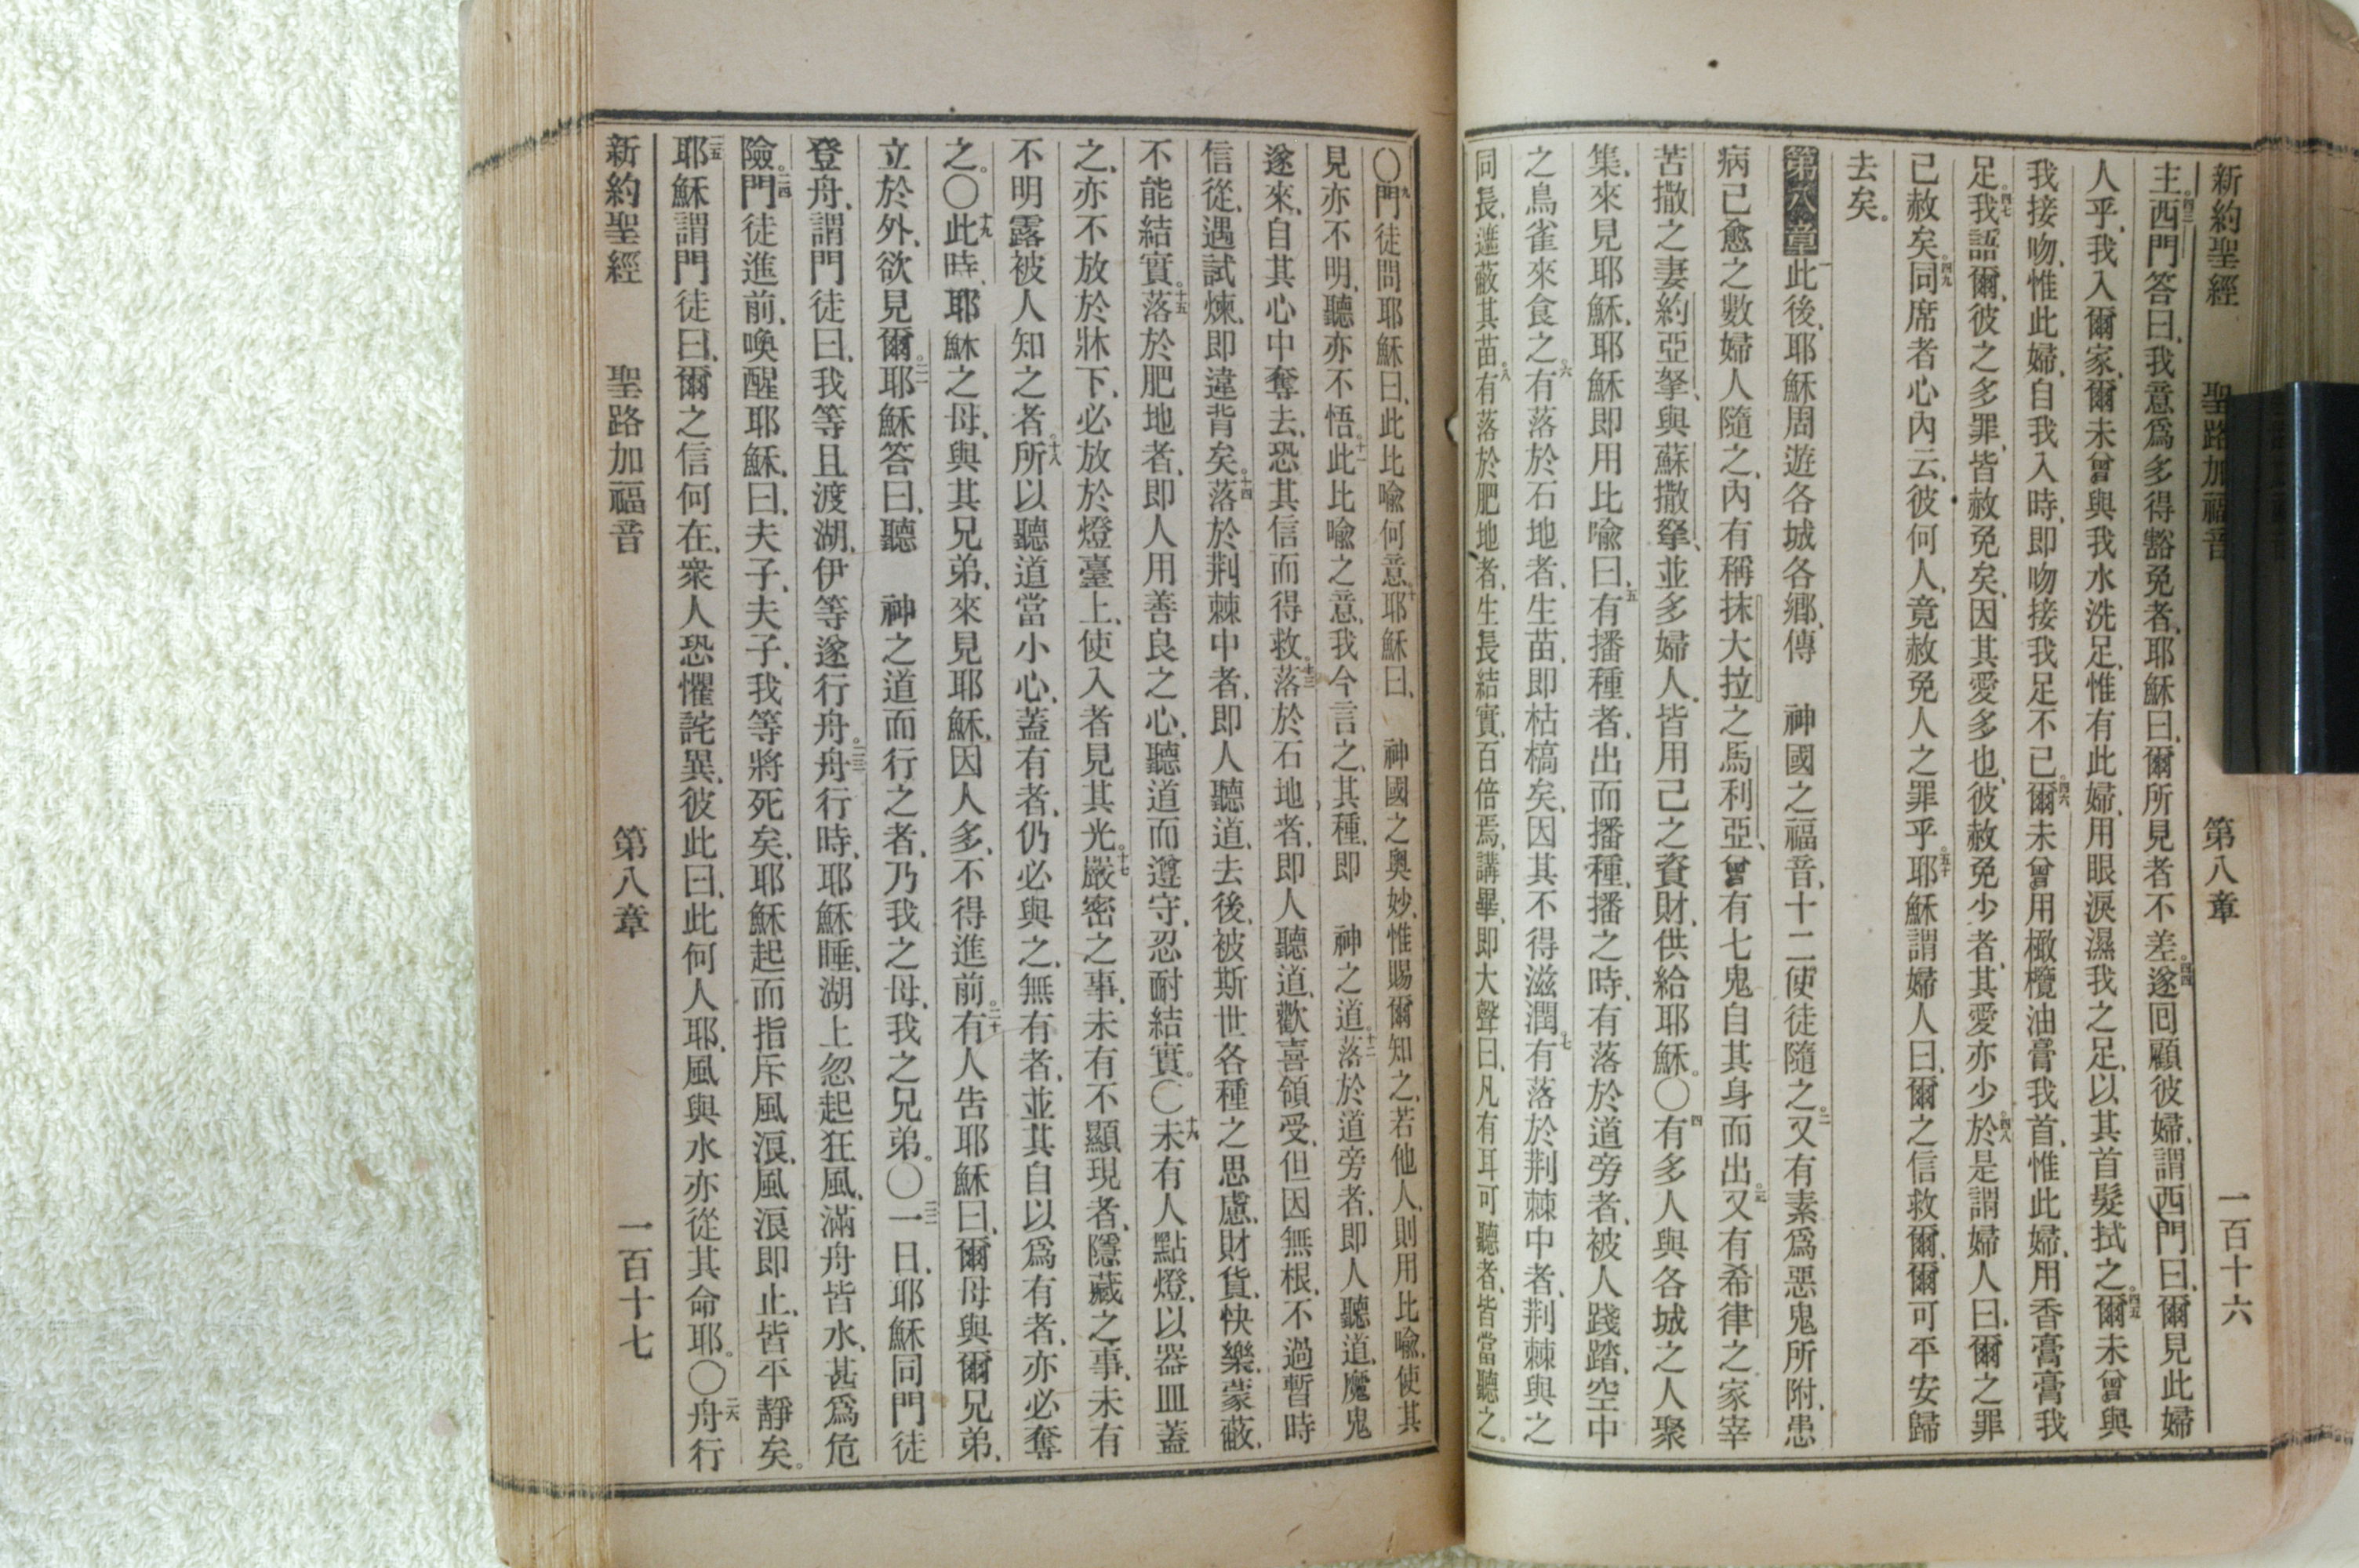 新約聖經 聖路加福音 第八章 一百十六
主。四三西門答曰、我意爲多得豁免者、耶穌曰、爾所見者不差。四四遂回顧彼婦、謂西門曰、爾見此婦
人乎、我入爾家、爾未曾與我水洗足、惟有此婦、用眼淚濕我之足、以其首髮拭之。四五爾未曾與
我接吻、惟此婦、自我入時、即吻接我足不已。四六爾未曾用橄欖油膏我首、惟此婦、用香膏膏我
足。四七我語爾、彼之多罪、皆赦免矣、因其愛多也、彼赦免少者、其愛亦少。四八於是謂婦人曰、爾之罪
已赦矣。四九同席者心內云、彼何人、竟赦免人之罪乎。五十耶穌謂婦人曰、爾之信救爾、爾可平安歸
去矣。
第八章一此後、耶穌周遊各城各鄉、傳 神國之福音、十二使徒隨之。二又有素爲惡鬼所附、患
病已愈之數婦人隨之、內有稱抹大拉之馬利亞、曾有七鬼自其身而出。三又有希律之家宰
苦撒之妻約亞拏、與蘇撒拏、並多婦人、皆用己之資財、供給耶穌。〇四有多人與各城之人聚
集、來見耶穌、耶穌即用比喻曰、五有播種者、出而播種、播之時、有落於道旁者、被人踐踏、空中
之鳥雀來食之。六有落於石地者、生苗、即枯槁矣、因其不得滋潤。七有落於荆棘中者、荆棘與之
同長、遮蔽其苗。八有落於肥地者、生長結實、百倍焉、講畢、即大聲曰、凡有耳可聽者、皆當聽之。
〇九門徒問耶穌曰、此比喻何意。十耶穌曰、 神國之奧妙、惟賜爾知之、若他人、則用比喻、使其
見亦不明、聽亦不悟。十一此比喻之意、我今言之、其種、即 神之道。十二落於道旁者、即人聽道、魔鬼
遂來、自其心中奪去、恐其信而得救。十三落於石地者、即人聽道、歡喜領受、但因無根、不過暫時
信從、遇試煉、即違背矣。十四落於荆棘中者、即人聽道、去後、被斯世各種之思慮、財貨、快樂、蒙蔽、
不能結實。十五落於肥地者、即人用善良之心、聽道而遵守、忍耐結實。〇十六未有人點燈、以器皿蓋
之、亦不放於牀下、必放於燈臺上、使入者見其光。十七嚴密之事、未有不顯現者、隱藏之事、未有
不明露被人知之者。十八所以聽道當小心、蓋有者、仍必與之、無有者、並其自以爲有者、亦必奪
之。〇十九此時、耶穌之母、與其兄弟、來見耶穌、因人多、不得進前。二十有人告耶穌曰、爾母與爾兄弟、
立於外、欲見爾。二一耶穌答曰、聽 神之道而行之者、乃我之母、我之兄弟。〇二二一日、耶穌同門徒
登舟、謂門徒曰、我等且渡湖、伊等遂行舟。二三舟行時、耶穌睡、湖上忽起狂風、滿舟皆水、甚爲危
險。二四門徒進前、喚醒耶穌、曰、夫子、夫子、我等將死矣、耶穌起而指斥風浪、風浪即止、皆平靜矣。
二五耶穌謂門徒曰、爾之信何在、衆人恐懼詫異、彼此曰、此何人耶、風與水亦從其命耶。〇二六舟行
新約聖經 聖路加福音 第八章 一百十七